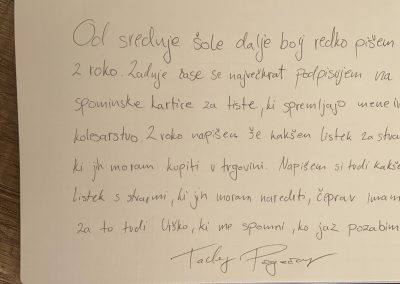 Od srednje šole dalje bolj redko pišem
z roko. Zadnje čase se največkrat podpisujem na
spominske kartice za tiste, ki spremljajo mene in
kolesarstvo. Z roko napišem še kakšen listek za stva
ki jih moram kupiti v trgovini. Napišem si tudi kakše
listek s stvarmi, ki jih moram narediti, čeprav imam
za to tudi Urško, ki me spomni, ko jaz pozabim
Tadej Pogačar